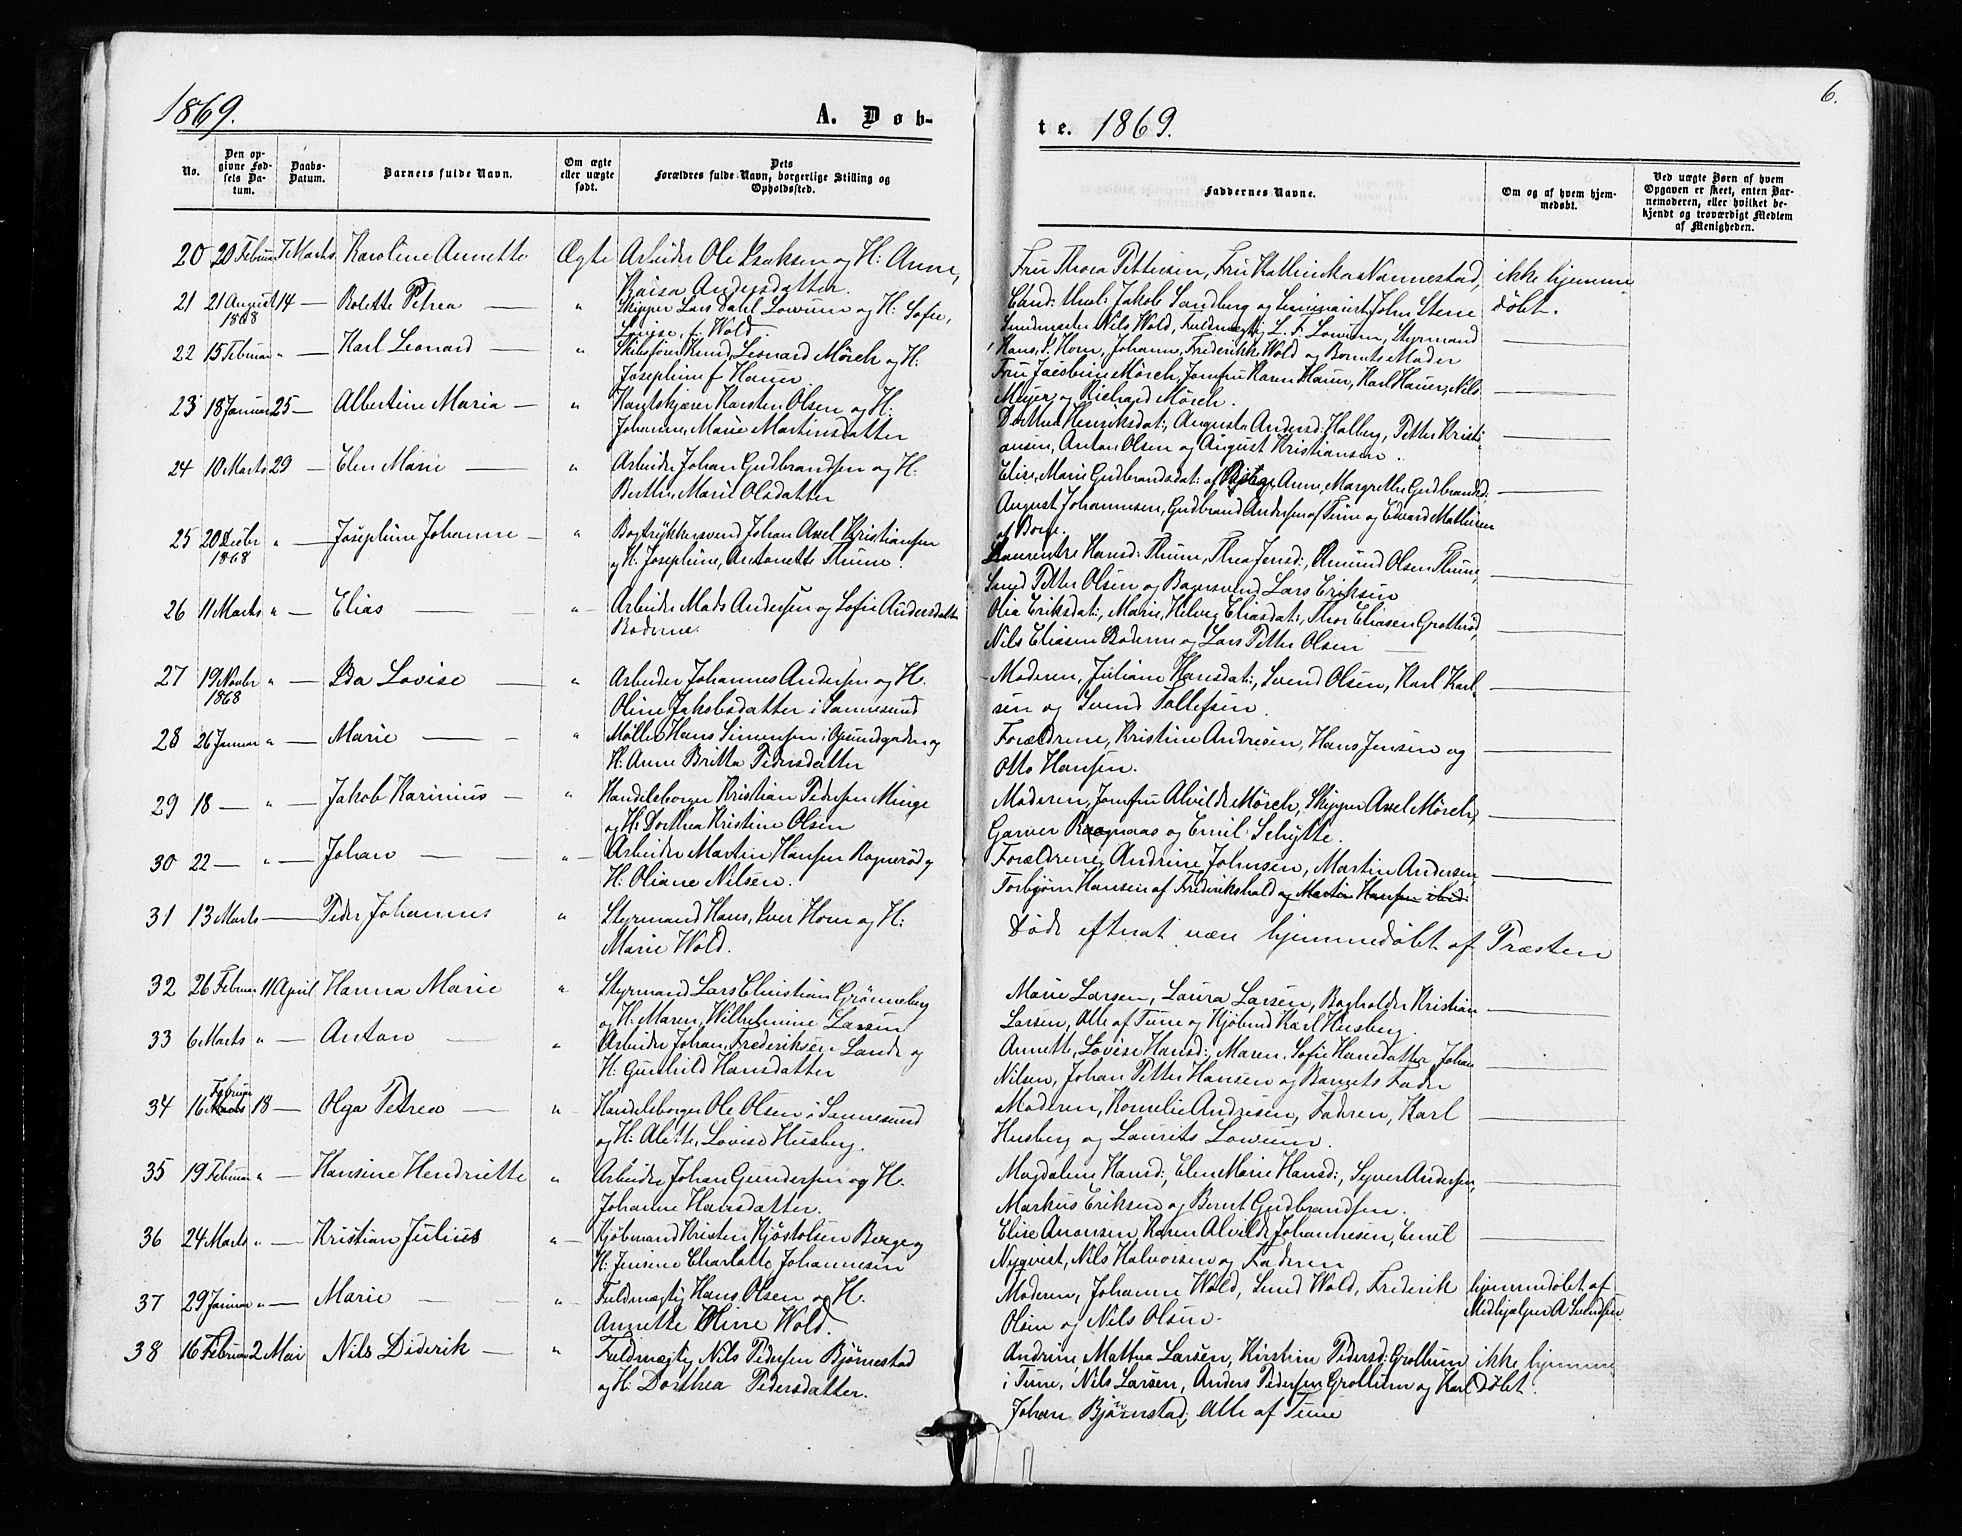 1869. A. Døb-
No.
Den op-
givne Fød-
sels Da-
tum.
Daabs-
Datum.
Barnets fulde Navn.
Om ægte
eller uægte
født.
Dets
Forældres fulde Navn, borgerlige Stilling og
Opholdssted.
20 20 Februar 7 Marts Karoline Annette Ægte Arbeider Ole Isaksen og H: Anne,
Kaisa Andersdatter.
21 21 August 14 — Bolette Petrea — " Skipper Lars Dahl Lowum og H: Sofie,
1868 Lovise, f. Wold.
22 15 Februar " — Karl Leonard — " Skibsfører Knud, Leonard Mörch og H.
Josephine f Hauer
23 18 Januar 25 — Albertine Maria — " Karsten Olsen og H:
Johanne, Marie Martinsdatter
24 10 Marts 29 — Elen Marie — " Arbeider Johan Gudbrandsen og H.
Berthe, Marie Olsdatter
25 20 " — Josephine Johanne — " Bogtrykkersvend Johan Axel Kristiansen
1868 og H. Josephine, Antonette Thune.
26 11 Marts " — Elias — " Arbeider Mads Andersen og Sofie Andersdatter
Boderne.
27 19 Novbr " — Ida Lovise — " Arbeider Johannes Andersen og H.
1868 Oline Jakobsdatter i Sannesund
28 26 Januar " — Marie — " Møller Hans Simensen i Opsundgaden og
H. Anne Britta Pedersdatter
29 18 — " — Jakob Karinius — " Handelsborger Kristian Pedersen Minge
og H. Dorthea Kristine Olsen
30 22 — " — Johan — " — Arbeider Martin Hansen Rognerød og
H: Oliane Nilsen.
31 13 Marts — Peder Johannes " Styrmand Hans, Iver Horn og H:
Marie Wold.
32 26 Februar 11 April Hanna Marie " Styrmand Lars Christian Grönneberg
og H. Maren, Wilhelmine Larsen
33 6 Marts " — Anton — " Arbeider Johan, Frederiksen Lande og
H: Gunhild Hansdatter
Februar
34 16 Marts 18 — Olga Petrea — " Handelsborger Ole Olsen i Sannesund
og H. Alette, Lovise Husberg.
35 19 Februar " — Hansine Hendriette " Arbeider Johan Gundersen og H.
Johanne Hansdatter.
36 24 Marts " — Kristian Julius " — Kjöbmand Kristen Kjöstolsen Berge og
H. Jensine Charlotte Johannesen
37 29 Januar " — Marie — " — Fuldmægtig Hans Olsen og H.
Annette Oline Wold.
38 16 Februar 2 Mai Nils Diderik — " Fuldmægtig Nils Pedersen Bjørnestad
og H. Dorthea Pedersdatter.
6.
te. 1869.
Faddernes Navne.
Om og af hvem hjem-
medøbt.
Ved uægte Børn af hvem
Opgaven er skeet, enten Bar-
nemoderen, eller hvilket be-
kjendt og troværdigt Medlem
af Menigheden.
Fru Thora Pettersen, Fru Kathinka Nannestad, ikke hjemme-
Cand: theol: Jakob Sandberg og Seminarist John Stene døbt.
Nils Wold, Fuldmægtig L. F. Lowum, Styrmand
Hans, I. Horn, Johanne, Frederikke Wold og Barnets Moder
Fru Jacobine Mörch, Jomfru Karen Hauer, Karl Hauer, Nils
Meyer og Richard Mörch.
Dorthea Henriksdat:, Augusta Andersd: Holberg, Petter Kristi-
ansen, Anton Olsen og August Kristiansen.
Elise, Marie Gudbrandsdat: af Borge, Anne, Margrethe Gudbrandsd:
August Johannesen, Gudbrand Andersen af Tune og Edvard Mathisen
af Borge.
Laurentze Hansd: Thune, Thea Jensd:, Amund Olsen Thune,
Smed Petter Olsen og Bagersvend Lars Eriksen
Olia Eriksdat:, Marie, Helvig Eliasdat:, Thor Eliasen Grotterød,
Nils Eliasen Boderne og Lars Petter Olsen —
Moderen, Juliane Hansdat:, Svend Olsen, Karl Karl-
sen og Svend Tollefsen.
Forældrene, Kristine Andresen, Hans Jensen og
Otto Hansen.
Moderen, Jomfru Alvilde Mörch, Skipper Axel Mörch,
Garver Ragnaas og Emil Schytte.
Forældrene, Andrine Johnsen, Martin Andersen,
Torbjørn Hansen af Frederikshald og Martin Hansen ibid:
Døde efterat være hjemmedøbt af Præsten
Marie Larsen, Laura Larsen, Bogholder Kristian
Larsen, Alle af Tune og Kjöbmd Karl Husberg.
Annette, Lovise Hansd:, Maren, Sofie Hansdatter, Johan
Nilsen, Johan Petter Hansen og Barnets Fader
Moderen, Kornelie Andresen, Faderen, Karl
Husberg og Laurits Lowum.
Magdalene Hansd:, Elen Marie Hansd:, Syver Andersen,
Markus Eriksen og Bernt Gudbrandsen.
Elise Aronsen, Karen Alvilde Johannesen, Emil
Nyqvist, Nils Halvorsen og Faderen
Moderen, Johanne Wold, Wold, Frederik hjemmedøbt af
Olsen og Nils Olsen. Medhjælper A Svendsen.
Andrine Mathea Larsen, Kirstine Pedersd: Grollum ikke hjemme
i Tune, Nils Larsen, Anders Pedersen Grollum og Karl døbt.
Johan Bjørnstad, Alle af Tune